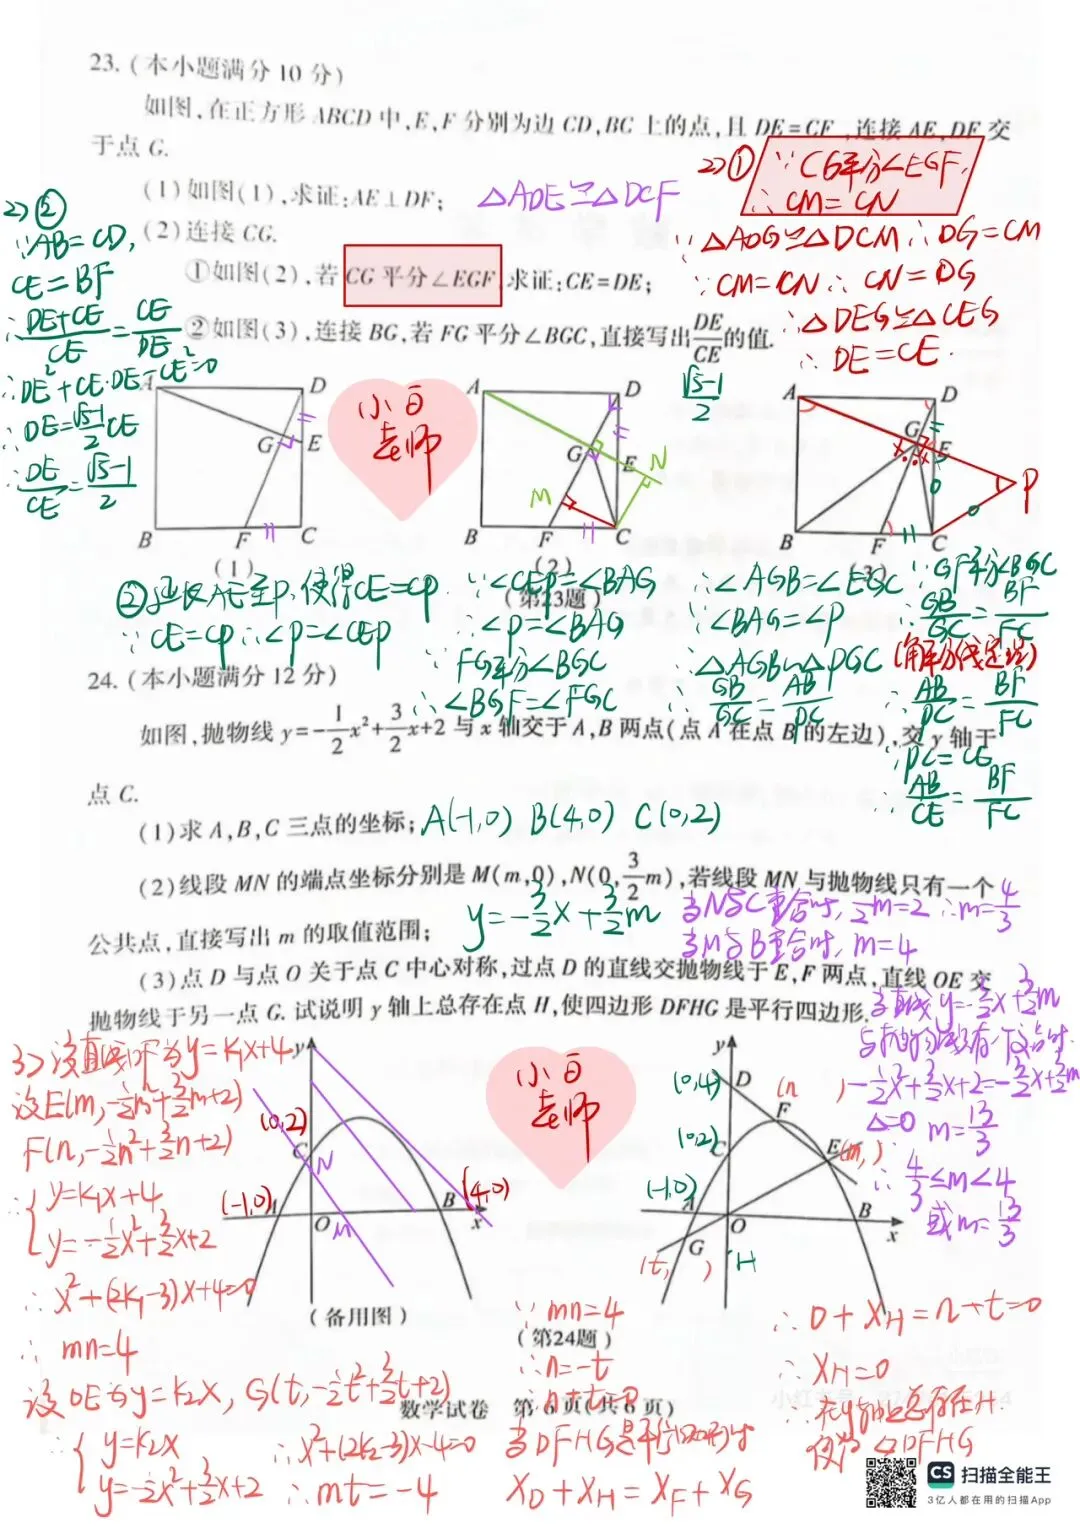 23.(本小题满分10分)
如图,在正方形ABCD中,E,F分别为边CD,BC上的点,且DE=CF,连接AE,DF交
于点G.
(1)如图(1),求证:AE⊥DF;
△ADE≌△DCF
(2)连接CG.
①如图(2),若CG平分∠EGF,求证:CE=DE;
②如图(3),连接BG,若FG平分∠BGC,直接写出DE/CE的值.
(√5-1)/2
2)①
∵CG平分∠EGF
∴CM=CN
∵△ADG≌△DCM∴DG=CM
∵CM=CN∴CN=DG
∴△DEG≌△CEG
∴DE=CE.
2)②
∵AB=CD,
CE=BF
∴(DE+CE)/CE=CE/DE
∴DE²+CE·DE-CE²=0
∴DE=(√5-1)/2 CE
∴DE/CE=(√5-1)/2
A D G E B F C
(1)
小白
老师
A D G E N M H B F C
(2)
A D G E P B F H C
(3)
(第23题)
②延长AE至P,使得CE=CP
∵CE=CP∴∠P=∠CEP
∵∠CEP=∠BAG
∴∠P=∠BAG
∵FG平分∠BGC
∴∠BGF=∠FGC
∴∠AGB=∠EGC
∵∠BAG=∠P
∴△AGB∽△PGC
∴GB/GC=AB/PC
∵GF平分∠BGC
∴GB/GC=BF/FC
(角平分线定理)
∴AB/PC=BF/FC
∵PC=CE
∴AB/CE=BF/FC
24.(本小题满分12分)
如图,抛物线y=-1/2x²+3/2x+2与x轴交于A,B两点(点A在点B的左边),交y轴于
点C.
(1)求A,B,C三点的坐标;
A(-1,0) B(4,0) C(0,2)
(2)线段MN的端点坐标分别是M(m,0),N(0,3/2m),若线段MN与抛物线只有一个
公共点,直接写出m的取值范围;
y=-3/2x+3/2m
当N与C重合时,3/2m=2∴m=4/3
当M与B重合时,m=4
(3)点D与点O关于点C中心对称,过点D的直线交抛物线于E,F两点,直线OE交
抛物线于另一点G.试说明y轴上总存在点H,使四边形DFHG是平行四边形.
当直线y=-3/2x+3/2m
与抛物线有一个交点时
-1/2x²+3/2x+2=-3/2x+3/2m
△=0 m=13/3
∴4/3≤m<4
或m=13/3
3)设直线DF为y=k₁x+4
设E(m,-1/2m²+3/2m+2)
F(n,-1/2n²+3/2n+2)
∴{y=k₁x+4
y=-1/2x²+3/2x+2
∴x²+(2k₁-3)x+4=0
∴mn=4
设OE为y=k₂x,G(t,-1/2t²+3/2t+2)
∴{y=k₂x
y=-1/2x²+3/2x+2
∴x²+(2k₂-3)x-4=0
∴mt=-4
y (0,2) C N (-1,0) A O M B (4,0) x
(备用图)
小白
老师
y (0,4) D (n, ) F (0,2) C E (m, ) (-1,0) A O B x G (t, ) H
(第24题)
∵mn=4
∴n=-t
∴n+t=0
当DFHG是平行四边形时
X_D+X_H=X_F+X_G
∴0+X_H=n+t=0
∴X_H=0
∴在y轴上总存在H
使为▱DFHG
数学试卷 第6页(共6页)
CS 扫描全能王
3亿人都在用的扫描App